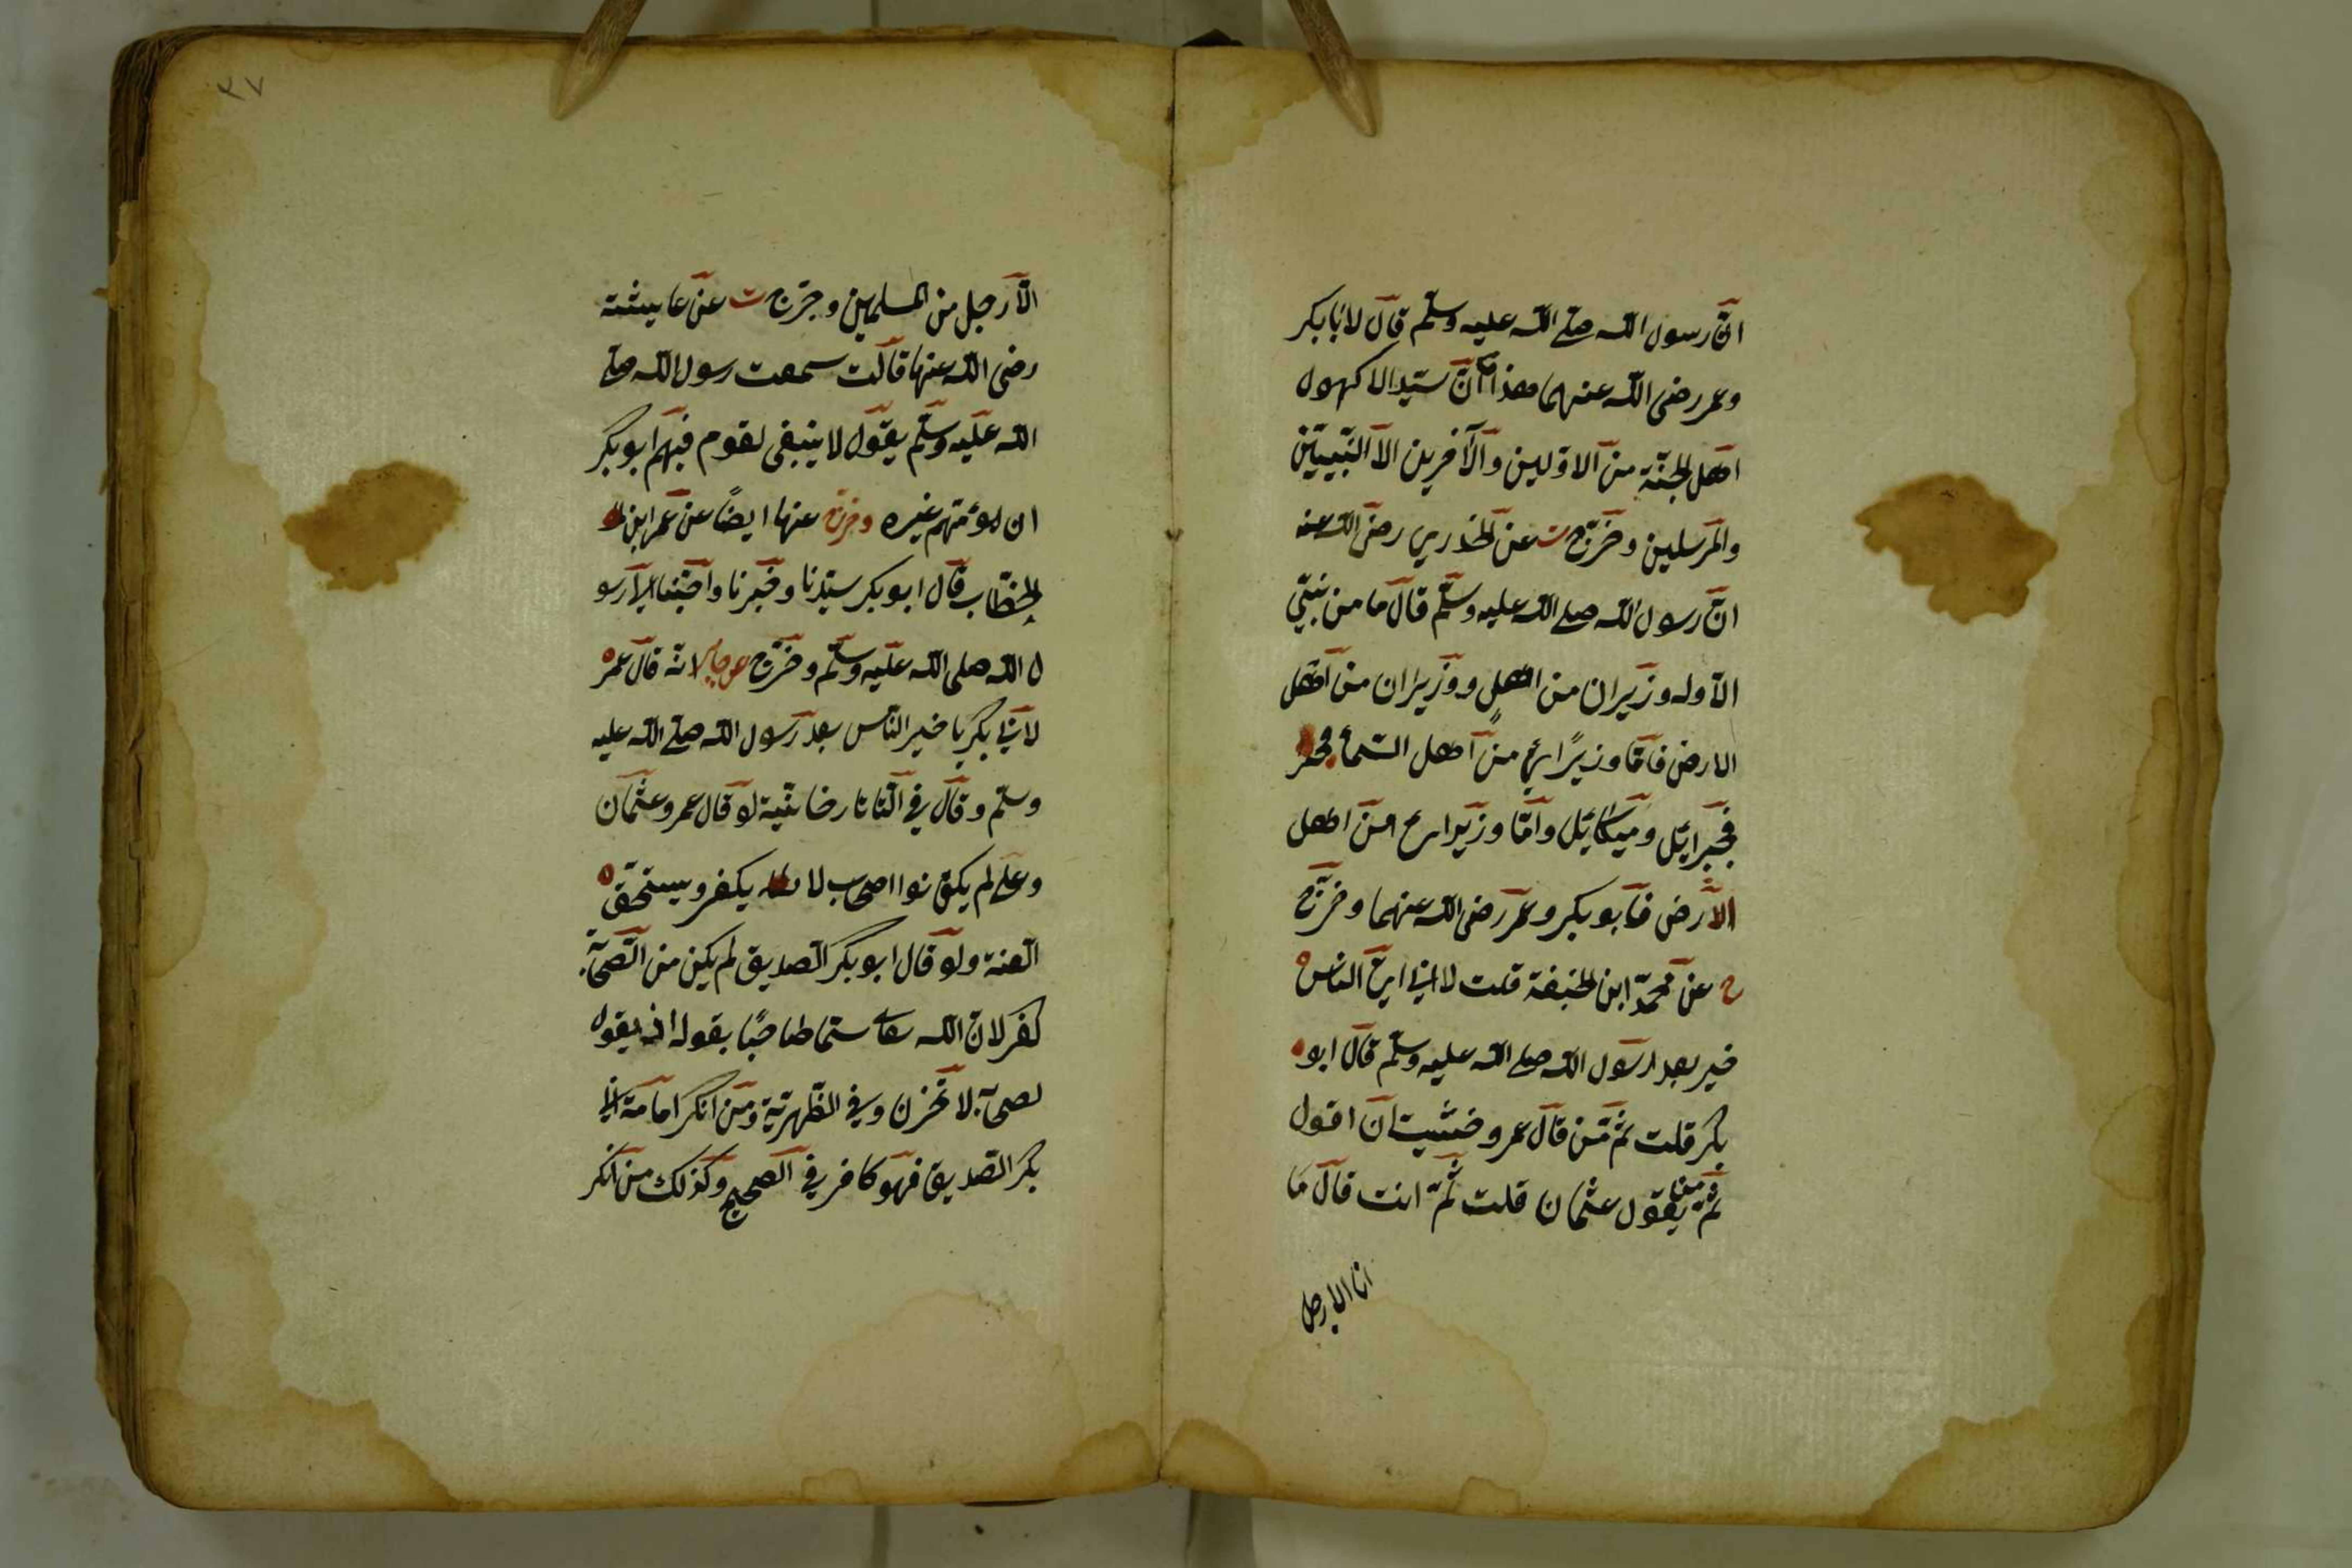 انّ رسول الله صلى الله عليه وسلّم قال لابابكر
وعمر رضى الله عنهما هذا انّ سيّدالا كهول
اهل الجنّة من الاوّلين والآخرين الا النّبيين
والمرسلين وخرّج ت عن الخدري رضى الله عنه
انّ رسول الله صلى الله عليه وسلّم قال ما من نبيّ
الاّ وله وزيران من اهل ووزيران من اهل
الارض فامّا وزيرًا ئى من اهل السّماء
فجبرائيل وميكائيل وامّا وزيرا من اهل
الارض فابوبكر وعمر رضى الله عنهما وخرّج
خ عن محمّد ابن الحنيفة قلت لابى ايّ الناس
خير بعد رسول الله صلى الله عليه وسلّم قال ابو
بكر قلت ثمّ من قال عمر وخشيت ان اقول
ثمّ من يقول عثمان قلت ثمّ انت قال ما
انا الا رجل
٣٧
الاّ رجل من المسلمين وخرّج ت عن عايشة
رضى الله عنها قالت سمعت رسول الله صلى
الله عليه وسلّم يقول لا ينبغى لقوم فيهم ابوبكر
ان يؤمّهم غيره وخرّج عنها ايضًا عن عمر ابن
الخطّاب قال ابوبكر سيّدنا وخيرنا واحبّنا الى رسو
ل الله صلى الله عليه وسلّم وخرّج عن جابر انّه قال عمر
لابى بكر يا خير النّاس بعد رسول الله صلى الله عليه
وسلّم وقال فى التّاتارخانيّة لو قال عمر وعثمان
وعلى لم يكونوا اصحاب لا يكفر ويستحقّ
العنة ولو قال ابوبكر الصّديق لم يكن من الصّحابة
كفر لانّ الله سمّاه صاحبًا بقوله اذ يقول
لصحابه لا تحزن وفى الظّهريّة ومن انكر امامة ابى
بكر الصّديق فهو كافر فى الصّحيح وكذلك من انكر